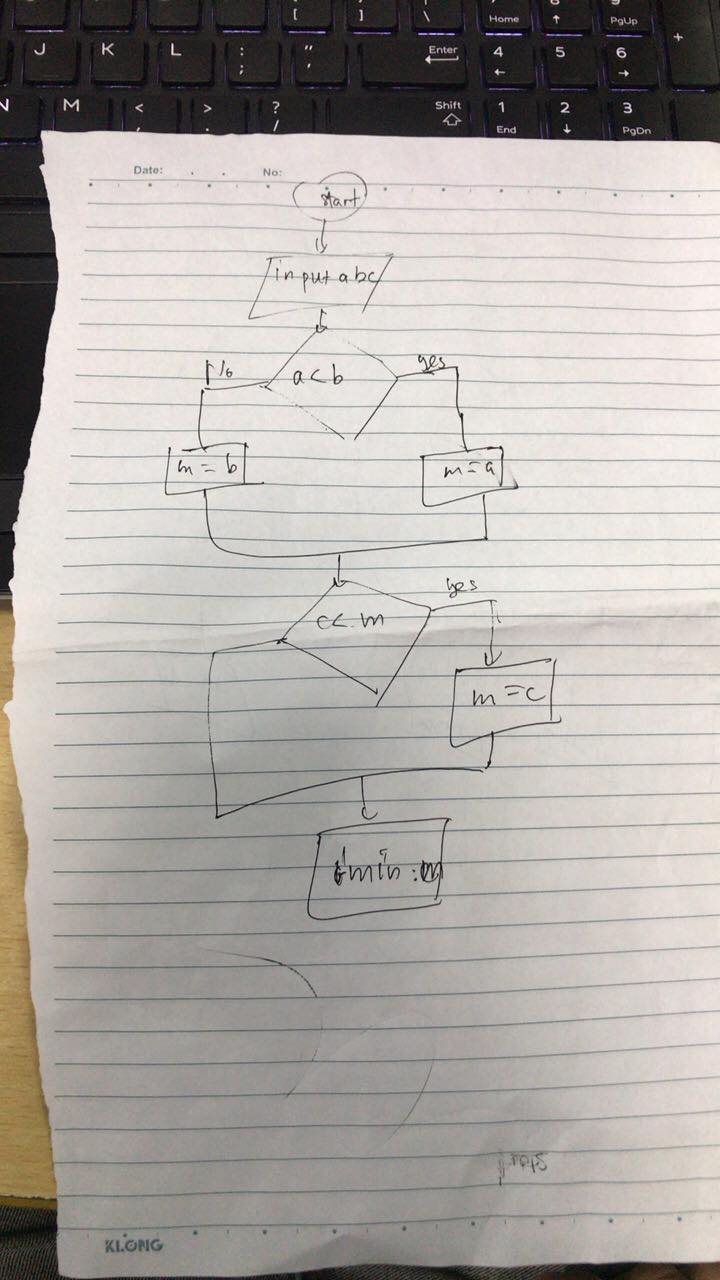 [ ] \ Home ↑ PgUp
J K L : ; " ' Enter 4 ← 5 6 → +
N M < , > . ? / Shift 1 End 2 ↓ 3 PgDn
Date: . . No:
start
input abc
a<b
yes
m = b
m=a
yes
c<m
m=c
min:m
KLONG